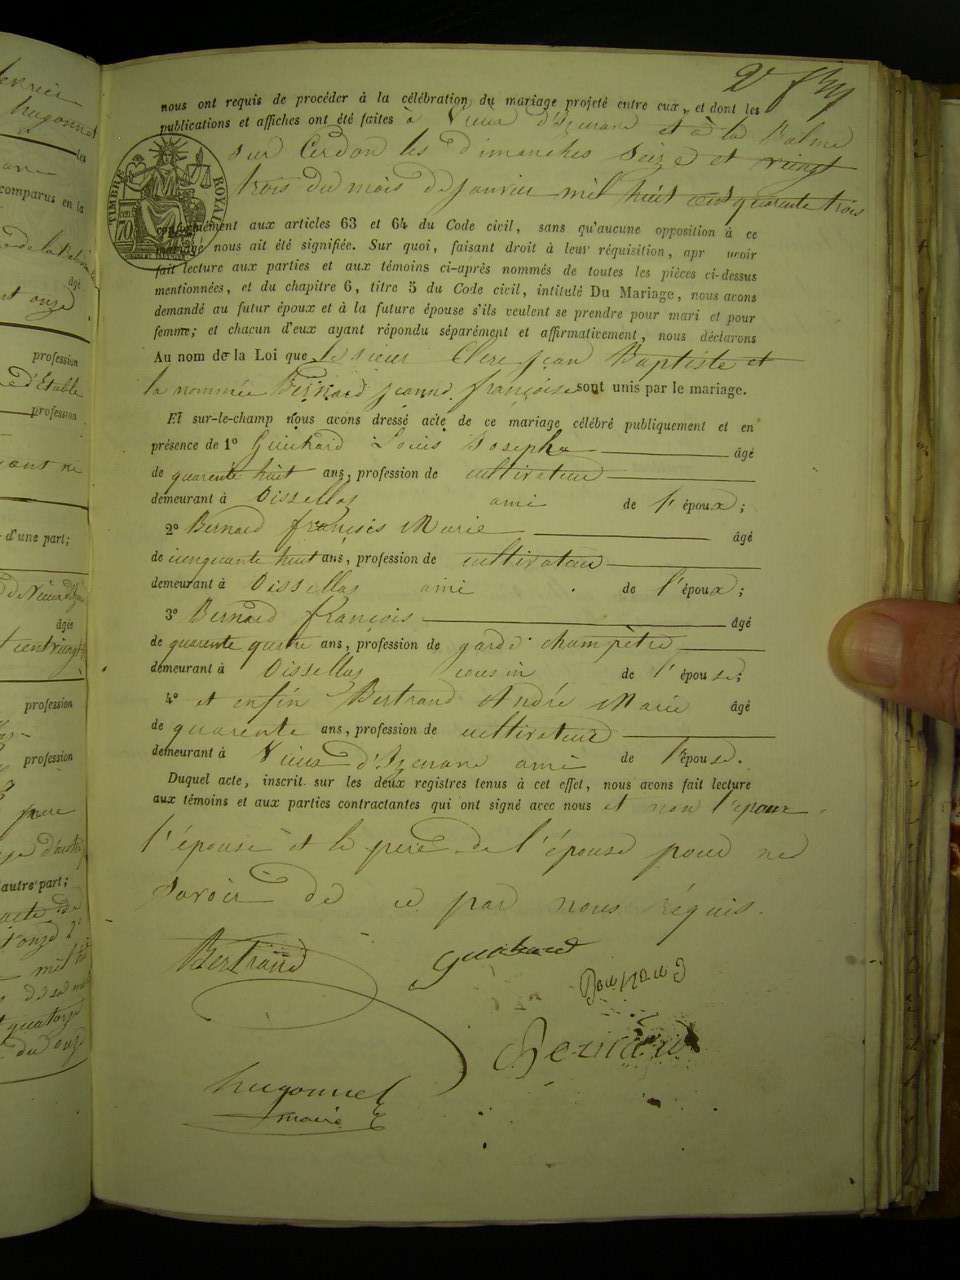 2e
nous ont requis de procéder à la célébration du mariage projeté entre eux, et dont les
publications et affiches ont été faites à Vieux d'Izenave et à la Balme
sur Cerdon les Dimanches Seize et vingt
trois du mois de Janvier mil huit cent quarante trois
TIMBRE ROYAL
70
conformément aux articles 63 et 64 du Code civil, sans qu'aucune opposition à ce
mariage nous ait été signifiée. Sur quoi, faisant droit à leur réquisition, apr avoir
fait lecture aux parties et aux témoins ci-après nommés de toutes les pièces ci-dessus
mentionnées, et du chapitre 6, titre 5 du Code civil, intitulé Du Mariage, nous avons
demandé au futur époux et à la future épouse s'ils veulent se prendre pour mari et pour
femme; et chacun d'eux ayant répondu séparément et affirmativement, nous déclarons
Au nom de la Loi que le sieur Clerc Jean Baptiste et
la nommée Bernard Jeanne françoise sont unis par le mariage.
Et sur-le-champ nous avons dressé acte de ce mariage célébré publiquement et en
présence de 1o Guichard Louis Josephe âgé
de quarente huit ans, profession de cultivateur
demeurant à Oissellas ami de l'époux;
2o Bernard françois Marie âgé
de cienquante huit ans, profession de cultivateur
demeurant à Oissellas ami de l'époux;
3o Bernard françois âgé
de quarente quatre ans, profession de garde champètre
demeurant à Oissellas cousin de l'épouse;
4o et enfin Bertrand André Marie âgé
de quarente ans, profession de cultivateur
demeurant à Vieux d'Izenave ami de l'épouse.
Duquel acte, inscrit sur les deux registres tenus à cet effet, nous avons fait lecture
aux témoins et aux parties contractantes qui ont signé avec nous et non l'époux
l'épouse et le père de l'épouse pour ne
savoir de ce par nous réquis.
Bertrand
Guichard
Bernard
Bernard
hugonnet
maire